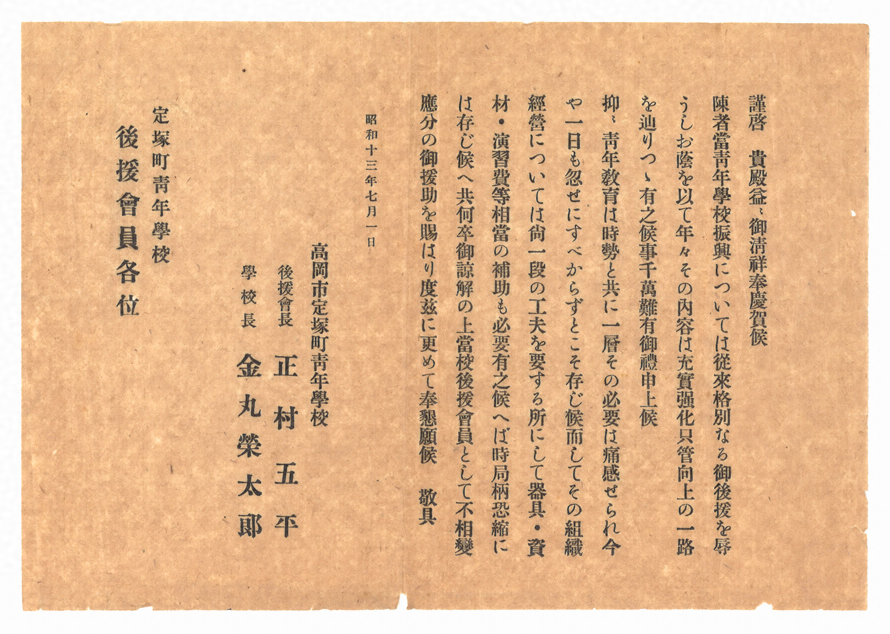 謹啓　貴殿益〻御淸祥奉慶賀候
陳者當靑年學校振興については從來格別なる御後援を辱
うしお蔭を以て年々その內容は充實强化只管向上の一路
を辿りつゝ有之候事千萬難有御禮申上候
抑〻靑年敎育は時勢と共に一層その必要は痛感せられ今
や一日も忽せにすべからずとこそ存じ候而してその組織
經營については尙一段の工夫を要する所にして器具・資
材・演習費等相當の補助も必要有之候へば時局柄恐縮に
は存じ候へ共何卒御諒解の上當校後援會員として不相變
應分の御援助を賜はり度玆に更めて奉懇願候　敬具
昭和十三年七月一日
高岡市定塚町靑年學校
後援會長　正村五平
學校長　金丸榮太郞
定塚町靑年學校
後援會員各位